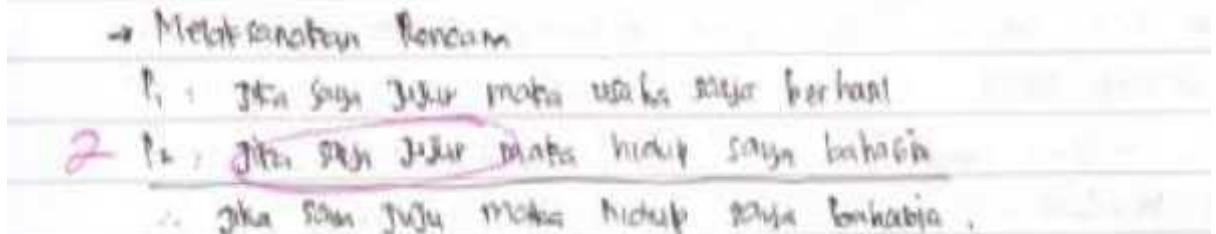 → Melaksanakan Rencam
P₁ : jika saya jujur maka usaha saya berhasil
2 P₂ : jika saya jujur maka hidup saya bahagia
∴ jika saya juju maka hidup saya bahagia.